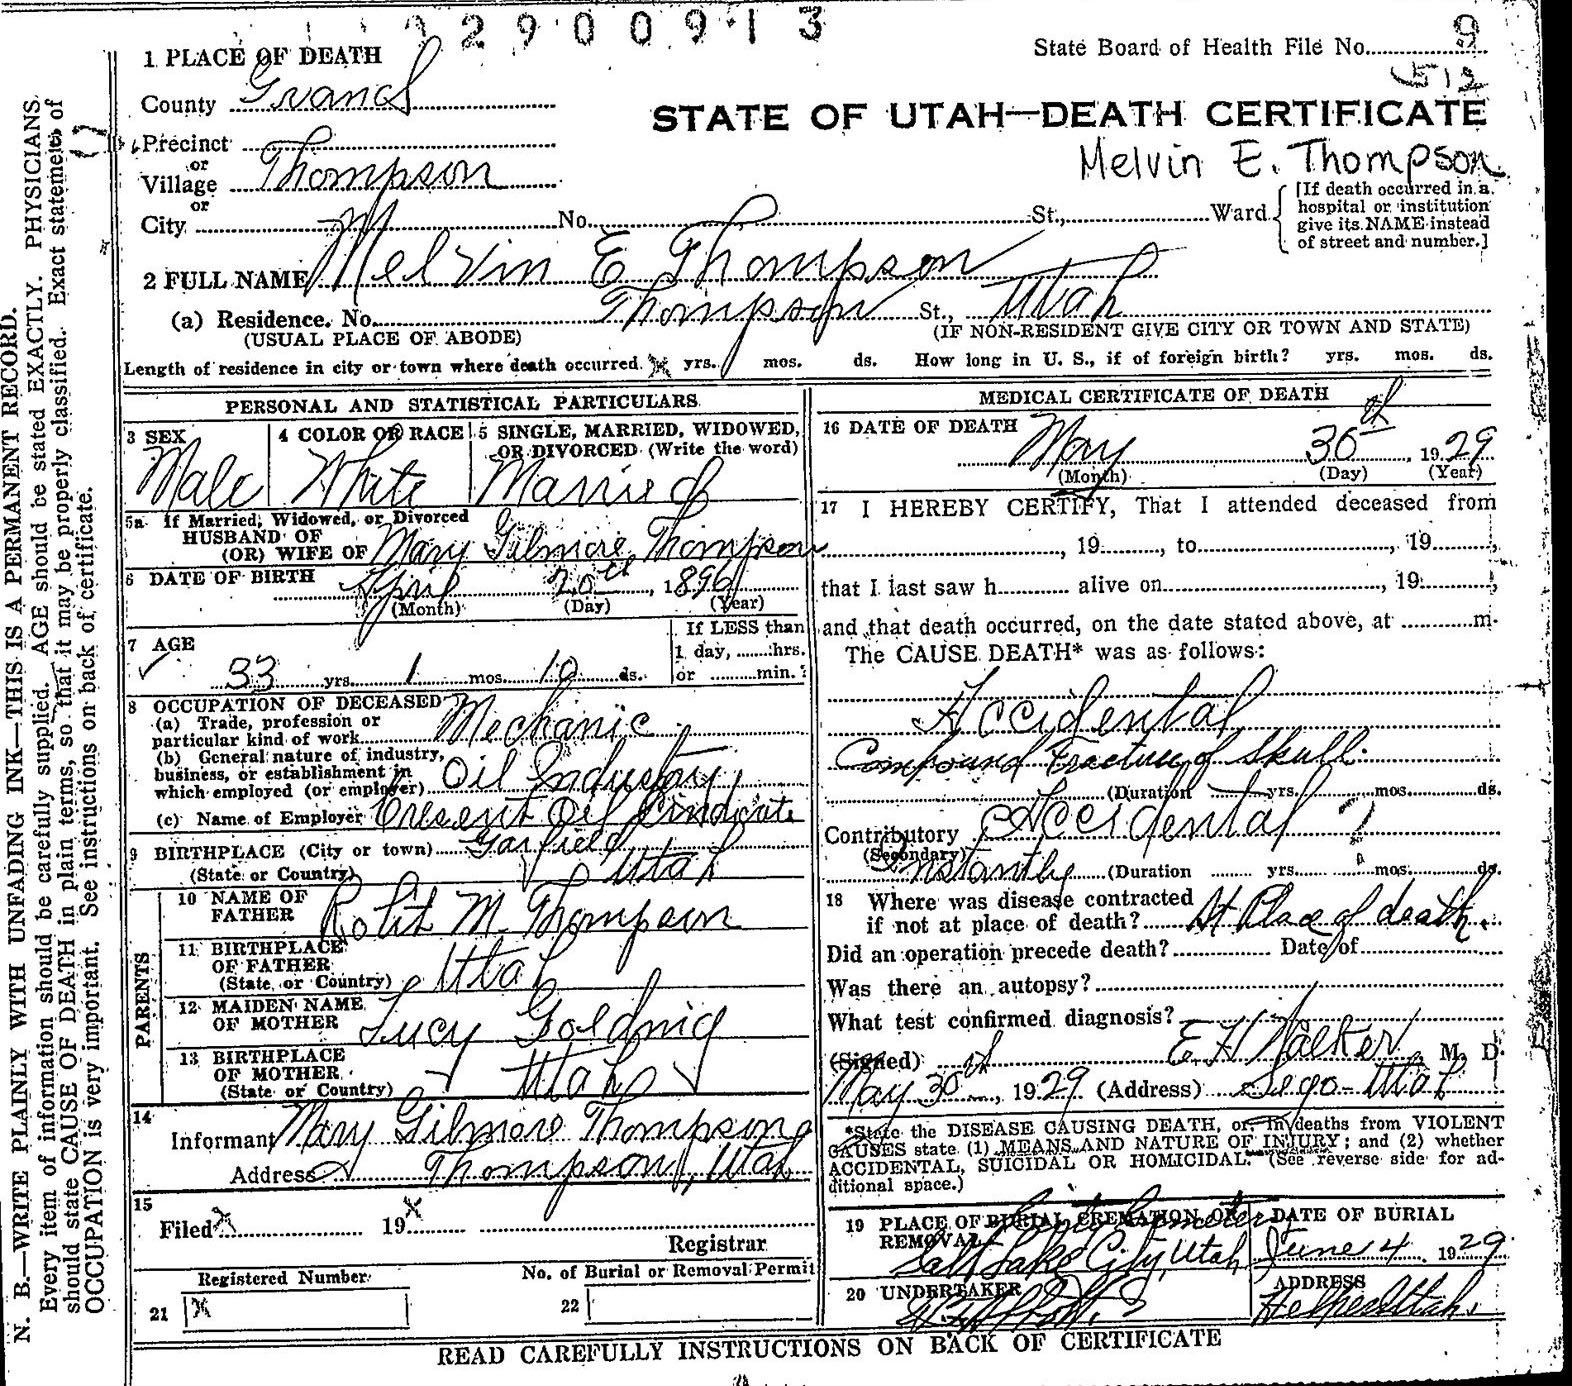 2900913
State Board of Health File No. 9
512
1 PLACE OF DEATH
County Grand
STATE OF UTAH—DEATH CERTIFICATE
Precinct
or
Village Thompson
Melvin E. Thompson
or
City No. St., Ward
[If death occurred in a hospital or institution give its NAME instead of street and number.]
2 FULL NAME Melvin E Thompson
(a) Residence. No. Thompson St., Utah
(USUAL PLACE OF ABODE) (IF NON-RESIDENT GIVE CITY OR TOWN AND STATE)
Length of residence in city or town where death occurred. x yrs. mos. ds. How long in U. S., if of foreign birth? yrs. mos. ds.
PERSONAL AND STATISTICAL PARTICULARS
3 SEX
Male
4 COLOR OR RACE
White
5 SINGLE, MARRIED, WIDOWED, OR DIVORCED (Write the word)
Married
5a If Married, Widowed, or Divorced
HUSBAND OF
(OR) WIFE OF Mary Gilmore Thompson
6 DATE OF BIRTH April 20th, 1896
(Month) (Day) (Year)
7 AGE
33 yrs. 1 mos. 10 ds.
If LESS than
1 day, hrs.
or min.
8 OCCUPATION OF DECEASED
(a) Trade, profession or
particular kind of work Mechanic
(b) General nature of industry,
business, or establishment in
which employed (or employer) Oil Industry
(c) Name of Employer Cresent Oil Cindicate
9 BIRTHPLACE (City or town) Garfield
(State or Country) Utah
PARENTS
10 NAME OF
FATHER Robt M. Thompson
11 BIRTHPLACE
OF FATHER
(State or Country) Utah
12 MAIDEN NAME
OF MOTHER Lucy Goldnig
13 BIRTHPLACE
OF MOTHER
(State or Country) Utah
14
Informant Mary Gilmore Thompson
Address Thompson, Utah
15
Filed x 19x
Registrar
Registered Number No. of Burial or Removal Permit
21 x 22
MEDICAL CERTIFICATE OF DEATH
16 DATE OF DEATH
May 30th, 1929
(Month) (Day) (Year)
17 I HEREBY CERTIFY, That I attended deceased from
, 19, to, 19,
that I last saw h alive on, 19;
and that death occurred, on the date stated above, at m.
The CAUSE DEATH* was as follows:
Accidental
Compound Fracture of Skull.
(Duration yrs. mos. ds.
Contributory Accidental
(Secondary)
Instantly (Duration yrs. mos. ds.
18 Where was disease contracted
if not at place of death? At Place of death.
Did an operation precede death? Date of
Was there an autopsy?
What test confirmed diagnosis?
(Signed) E H Walker, M. D.
May 30th, 1929 (Address) Sego Utah
*State the DISEASE CAUSING DEATH, or in deaths from VIOLENT
CAUSES state (1) MEANS AND NATURE OF INJURY; and (2) whether
ACCIDENTAL, SUICIDAL OR HOMICIDAL. (See reverse side for ad-
ditional space.)
19 PLACE OF BURIAL CREMATION OR
REMOVAL
Salt Lake City, Utah
DATE OF BURIAL
June 4 1929
20 UNDERTAKER
ADDRESS
Helper Utah.
READ CAREFULLY INSTRUCTIONS ON BACK OF CERTIFICATE
N. B.—WRITE PLAINLY WITH UNFADING INK—THIS IS A PERMANENT RECORD.
Every item of information should be carefully supplied. AGE should be stated EXACTLY. PHYSICIANS
should state CAUSE OF DEATH in plain terms, so that it may be properly classified. Exact statement of
OCCUPATION is very important. See instructions on back of certificate.